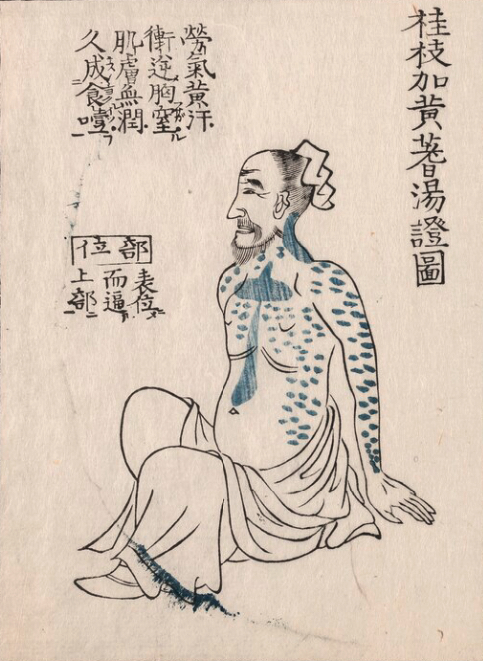 桂枝加黄蓍湯證圖
勞氣黄汗
衝逆胸窒
肌膚無潤
久成食噎
部位
表位
而逼
上部